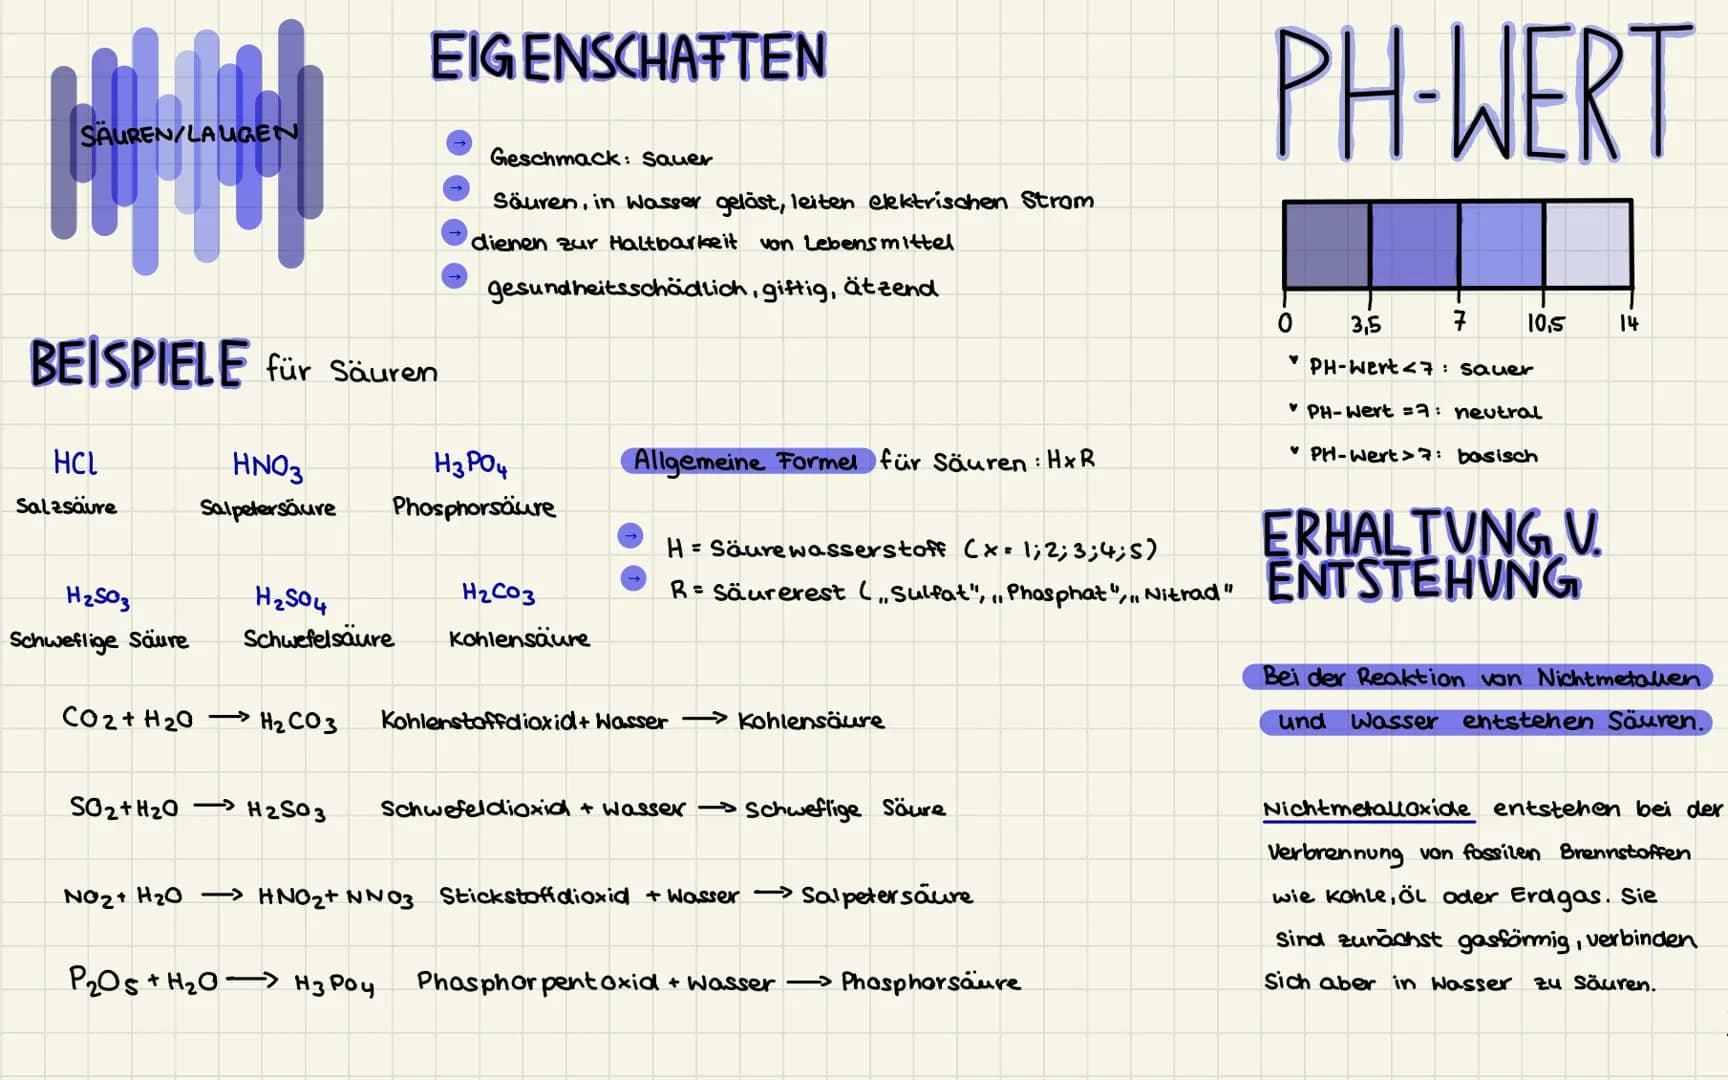 SÄUREN/LAUGEN
EIGENSCHAFTEN
→ Geschmack: sauer
→ Säuren, in Wasser gelöst, leiten elektrischen Strom
→ dienen zur Haltbarkeit von Lebensmittel
→ gesundheitsschädlich, giftig, ätzend
BEISPIELE für Säuren
HCl HNO₃ H₃PO₄
Salzsäure Salpetersäure Phosphorsäure
H₂SO₃ H₂SO₄ H₂CO₃
Schweflige Säure Schwefelsäure Kohlensäure
Allgemeine Formel für Säuren: HxR
→ H = Säurewasserstoff (x = 1;2;3;4;5)
→ R = Säurerest („Sulfat", „Phosphat", „Nitrad"
CO₂ + H₂O → H₂CO₃ Kohlenstoffdioxid + Wasser → Kohlensäure
SO₂ + H₂O → H₂SO₃ Schwefeldioxid + Wasser → Schweflige Säure
NO₂ + H₂O → HNO₂ + NNO₃ Stickstoffdioxid + Wasser → Salpetersäure
P₂O₅ + H₂O → H₃PO₄ Phosphorpentoxid + Wasser → Phosphorsäure
PH-WERT
0 3,5 7 10,5 14
PH-Wert < 7: sauer
PH-Wert = 7: neutral
PH-Wert > 7: basisch
ERHALTUNG U.
ENTSTEHUNG
Bei der Reaktion von Nichtmetallen
und Wasser entstehen Säuren.
Nichtmetalloxide entstehen bei der
Verbrennung von fossilen Brennstoffen
wie Kohle, Öl oder Erdgas. Sie
sind zunächst gasförmig, verbinden
sich aber in Wasser zu Säuren.